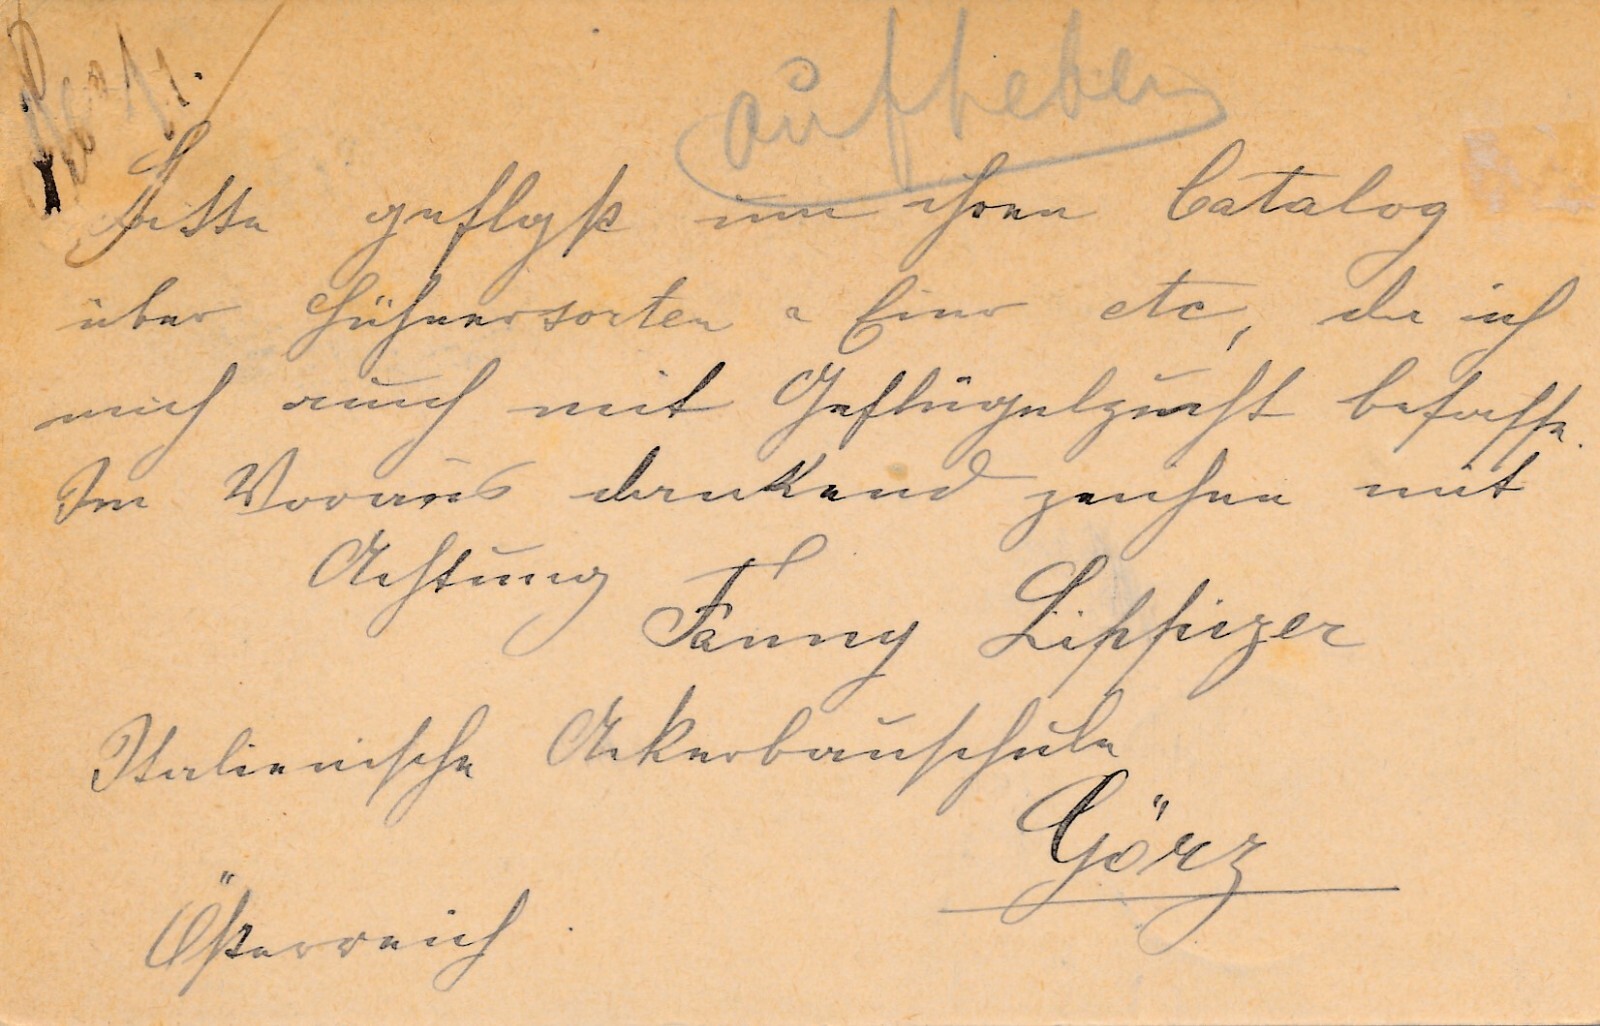 aufheben
Bitte geflgst um ihren Catalog
über Hühnersorten Eier etc, da ich
mich auch mit Geflügelzucht befasse.
Im Voraus dankend zeichne mit
Achtung
Fanny Lippizer
Italienische Ackerbauschule
Görz
Österreich